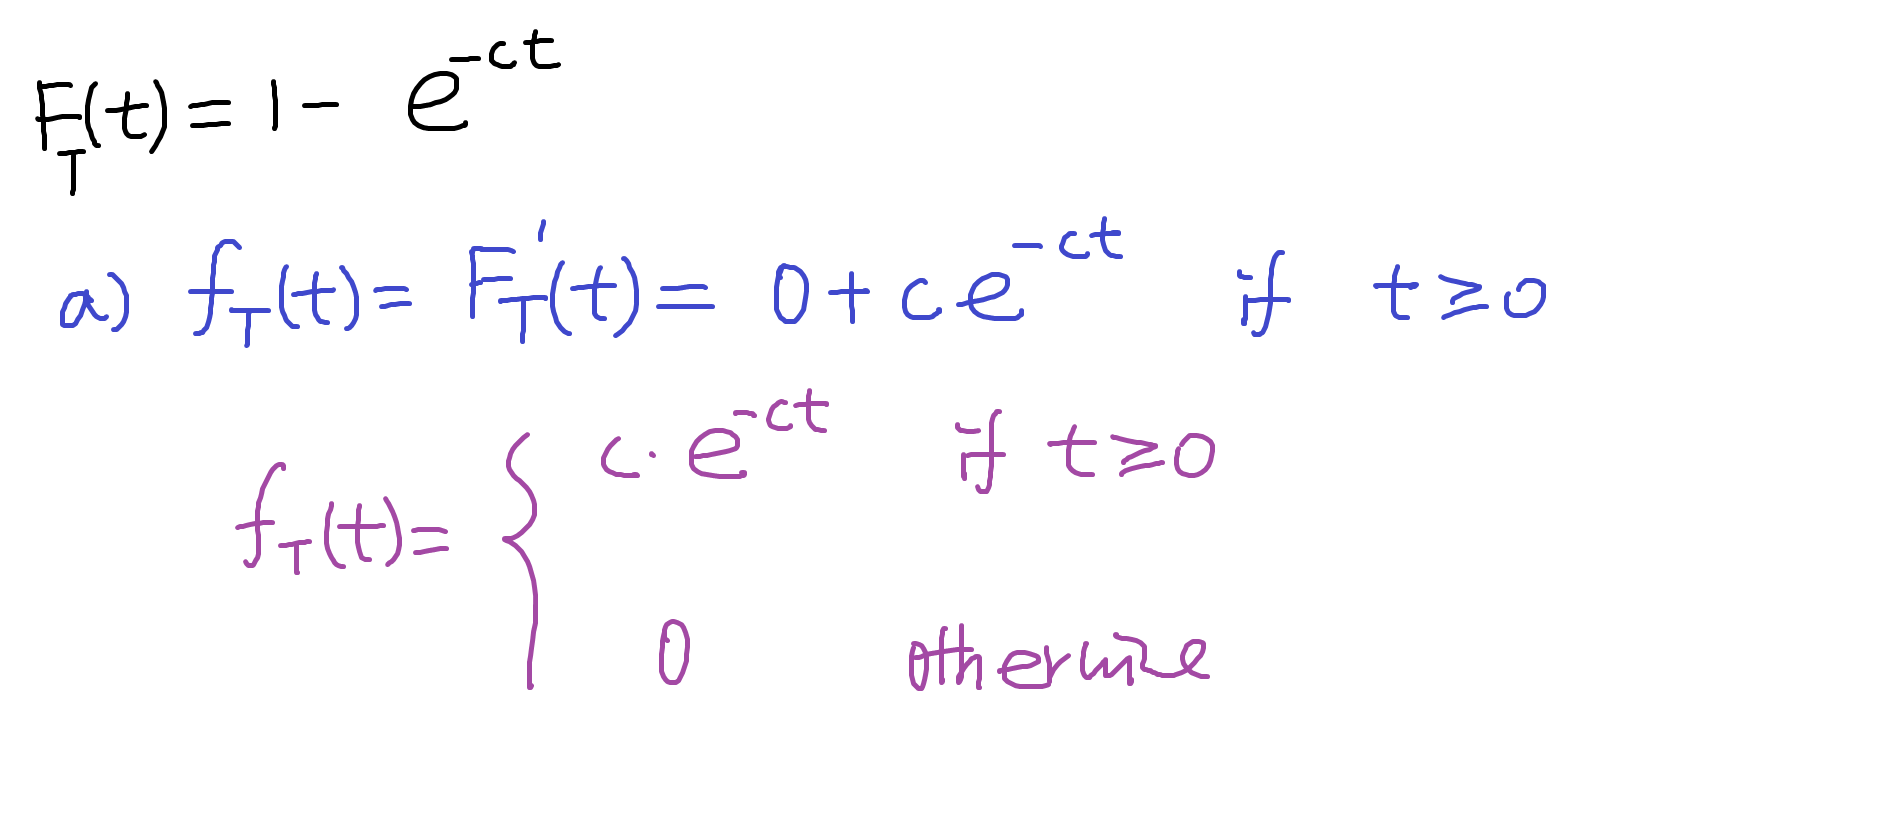 F_T(t) = 1 - e^{-ct}
a) f_T(t) = F_T'(t) = 0 + c e^{-ct} if t ≥ 0
f_T(t) = { c · e^{-ct} if t ≥ 0
0 otherwise